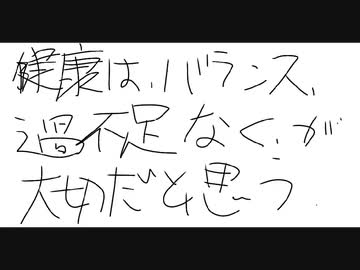 健康は、バランス、
過不足なく、が
大切だと思う.